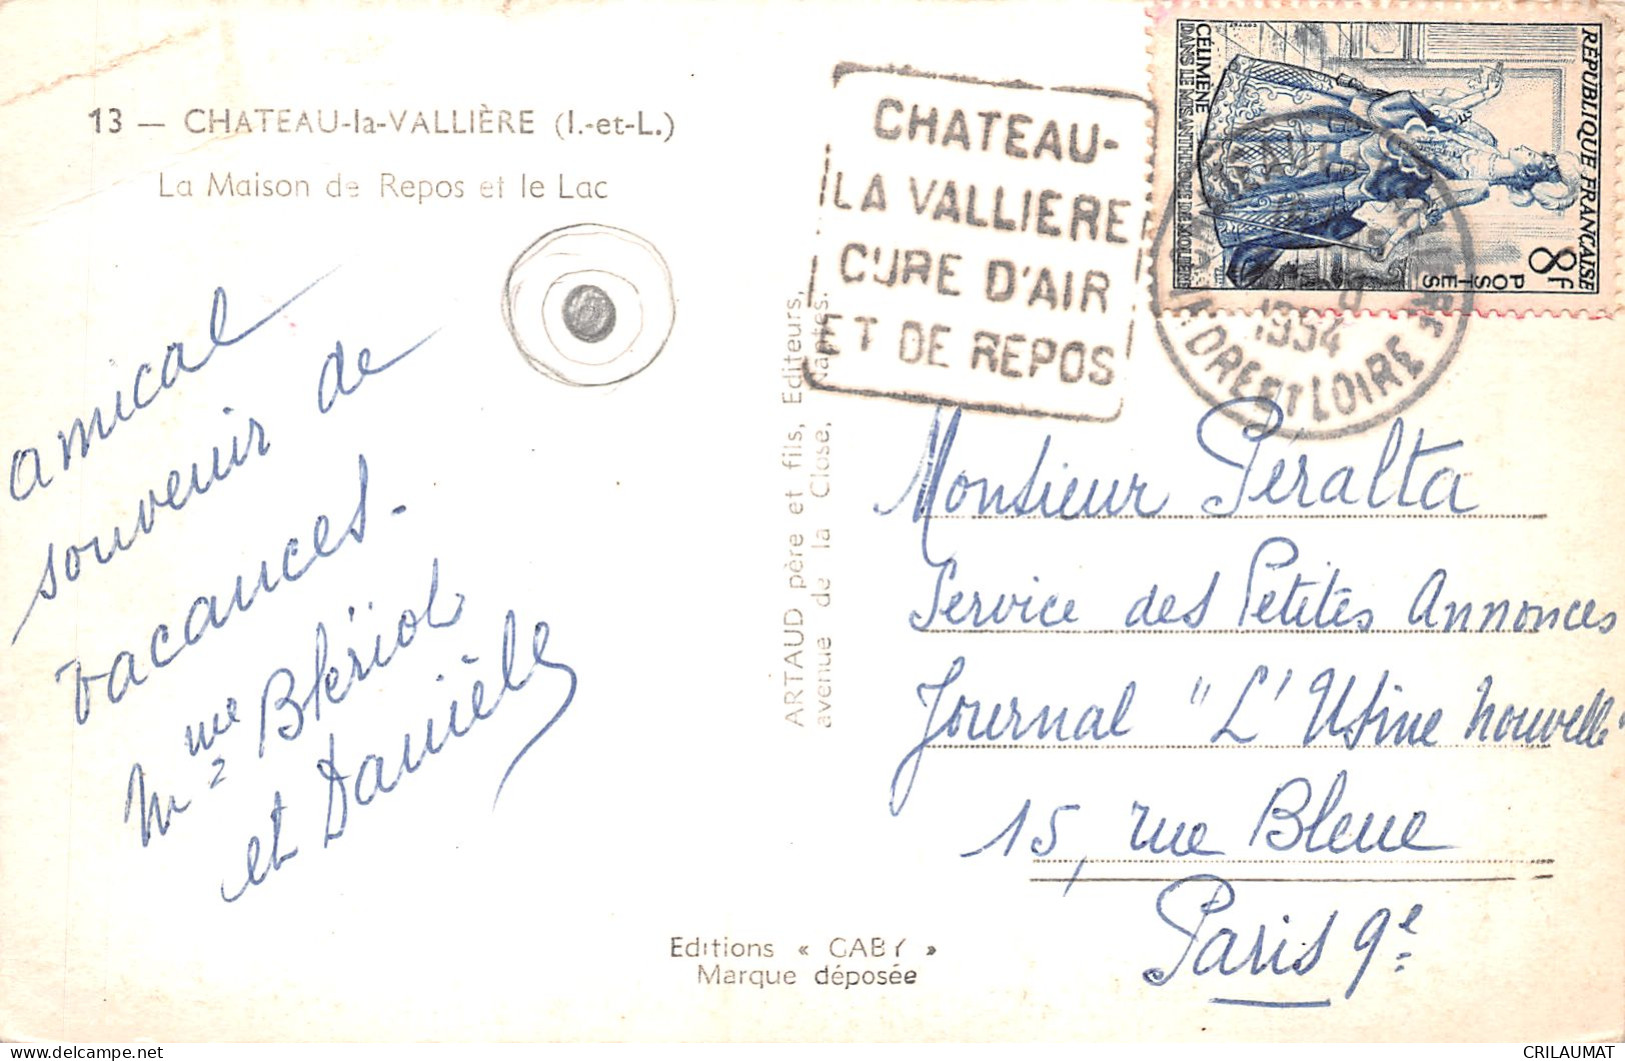 13 — CHATEAU-la-VALLIÈRE (I.-et-L.)
La Maison de Repos et le Lac
amical
souvenir de
vacances.
Mme Blériot
et Danièle
ARTAUD père et fils, Editeurs,
avenue de la Close, Nantes.
Editions « GABY »
Marque déposée
CHATEAU-
LA VALLIERE
CURE D'AIR
ET DE REPOS
RÉPUBLIQUE FRANÇAISE
8F
POSTES
CÉLIMÈNE
DANS LE MISANTHROPE DE MOLIÈRE
1954
INDRE ET LOIRE
Monsieur Péralta
Service des Petites Annonces
Journal "L'Usine Nouvelle"
15, rue Bleue
Paris 9e
CRILAUMAT